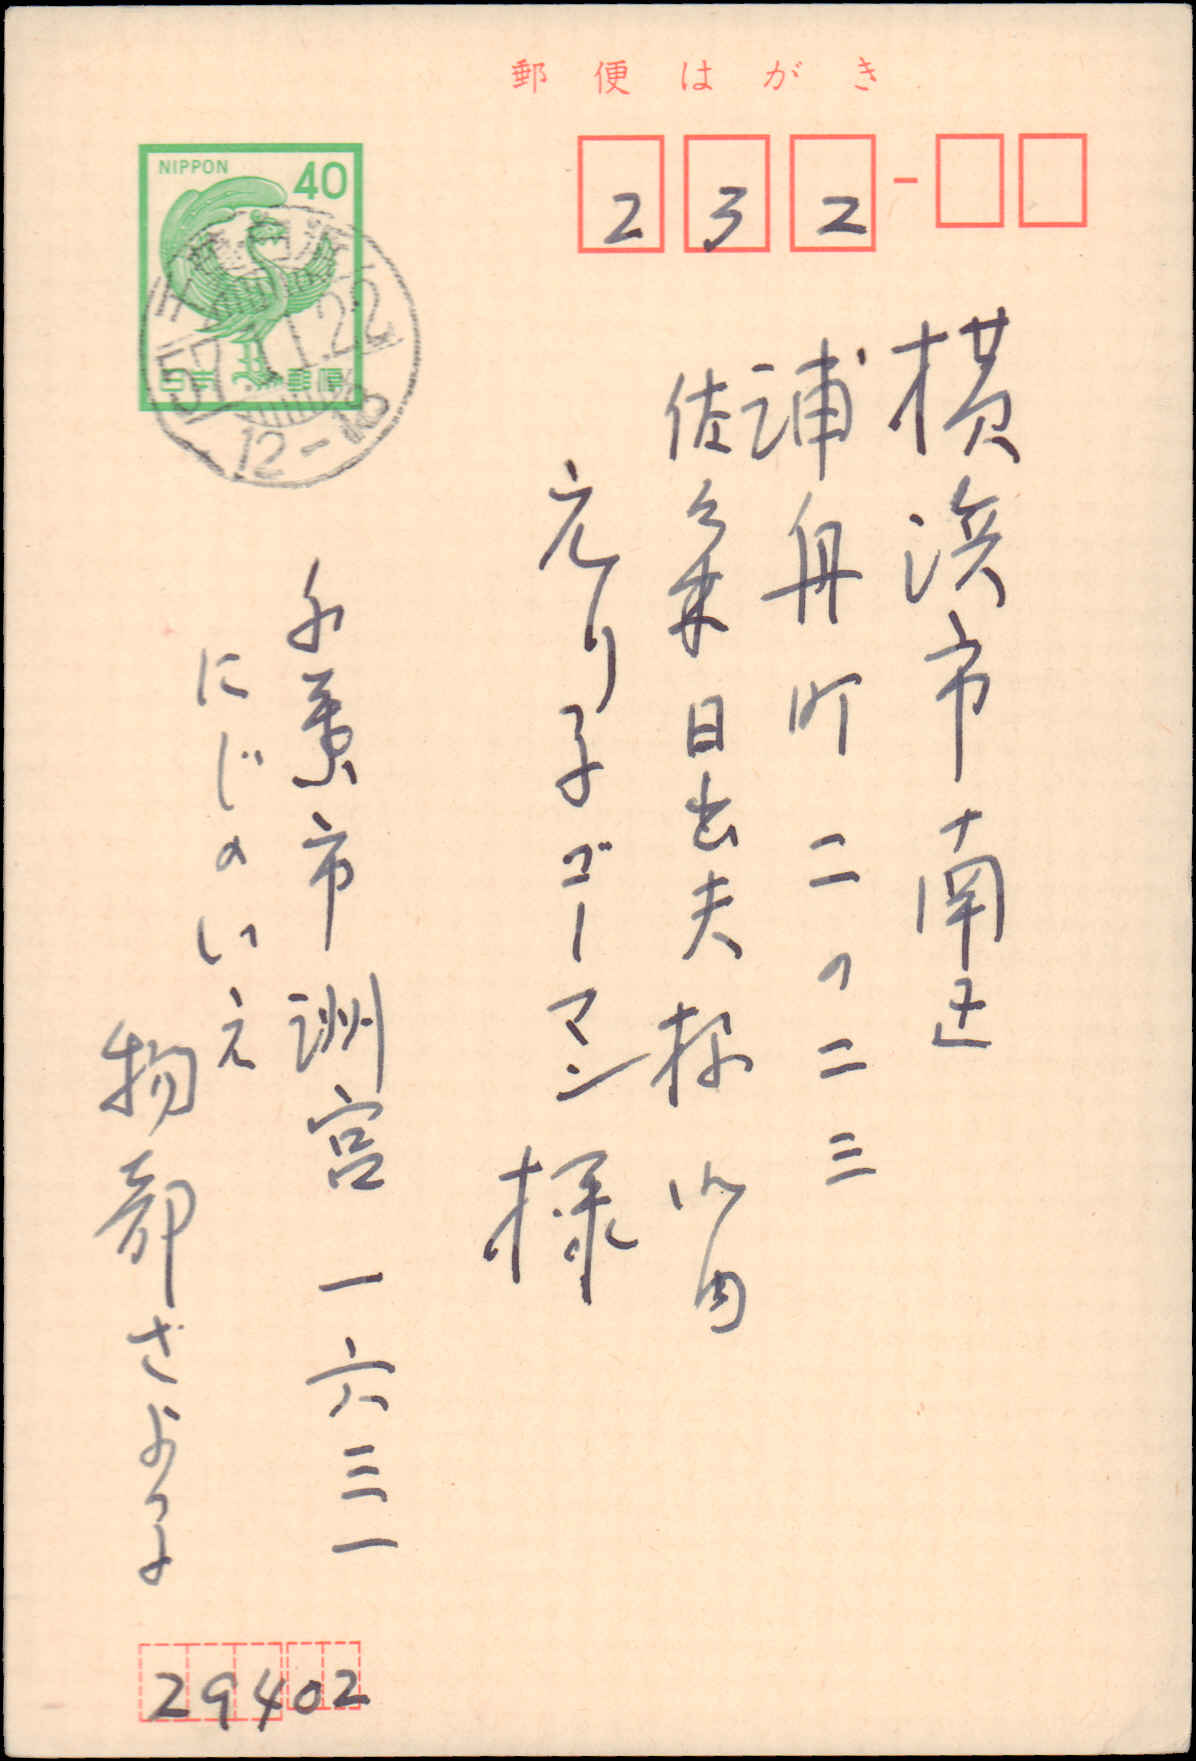 郵便はがき
232
NIPPON
40
日本郵便
57.11.22
12-18
横浜市南区
浦舟町二の二三
佐久来日出夫様
子ゴーマン様
市洲宮一六三一
にじのいえ
物部さよ子
29402